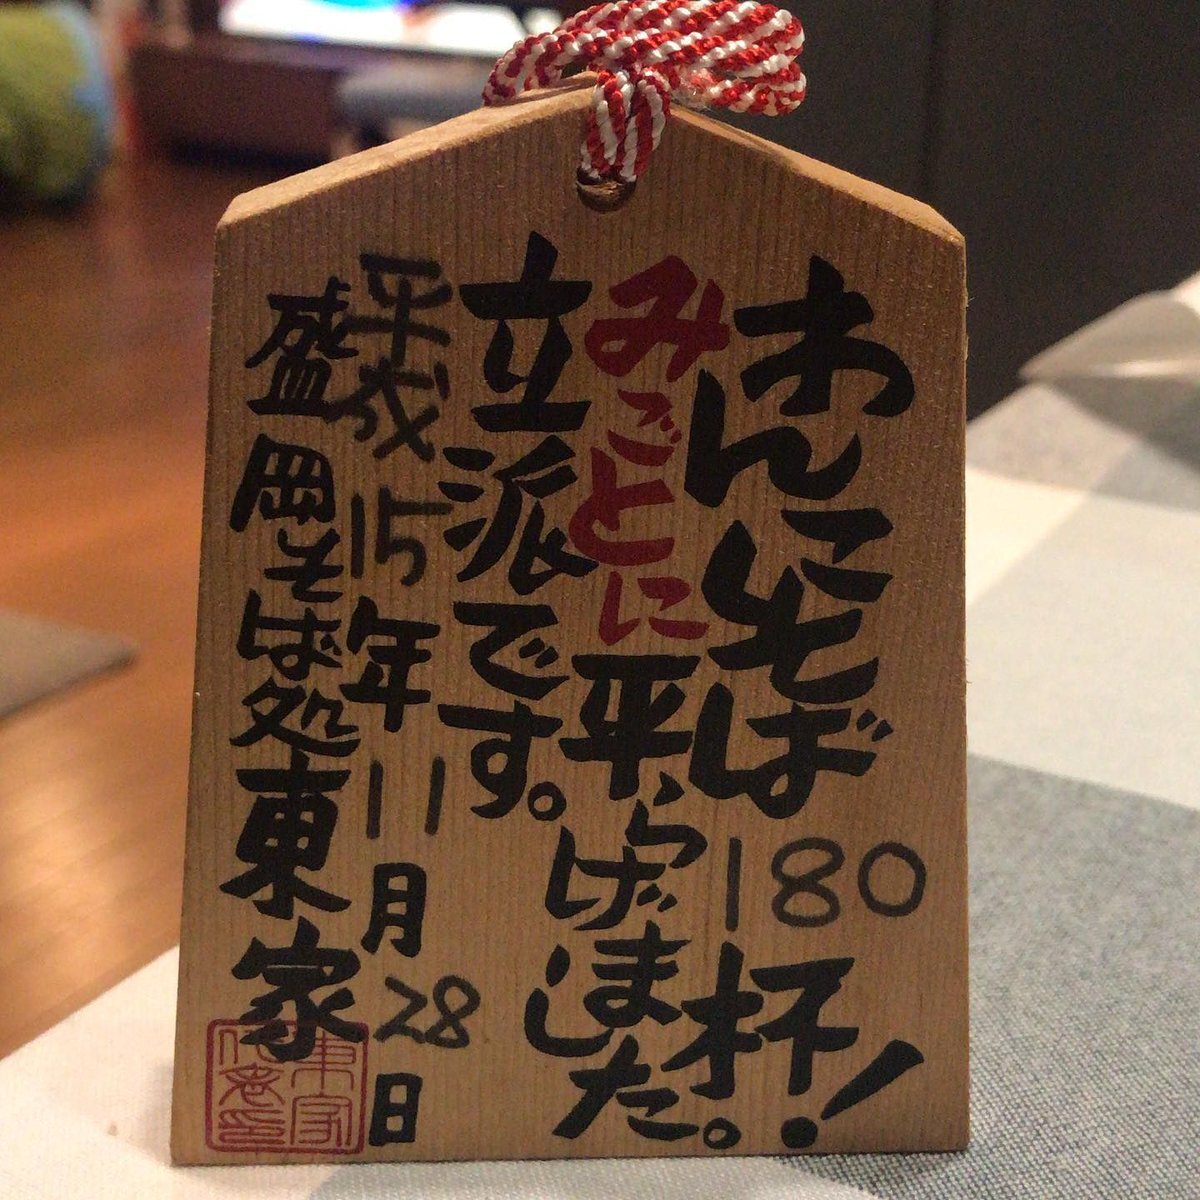 わんこそば180杯!
みっごとに平らげました。
立派です。
平成15年11月28日
盛岡そば処東家
東家
代表印